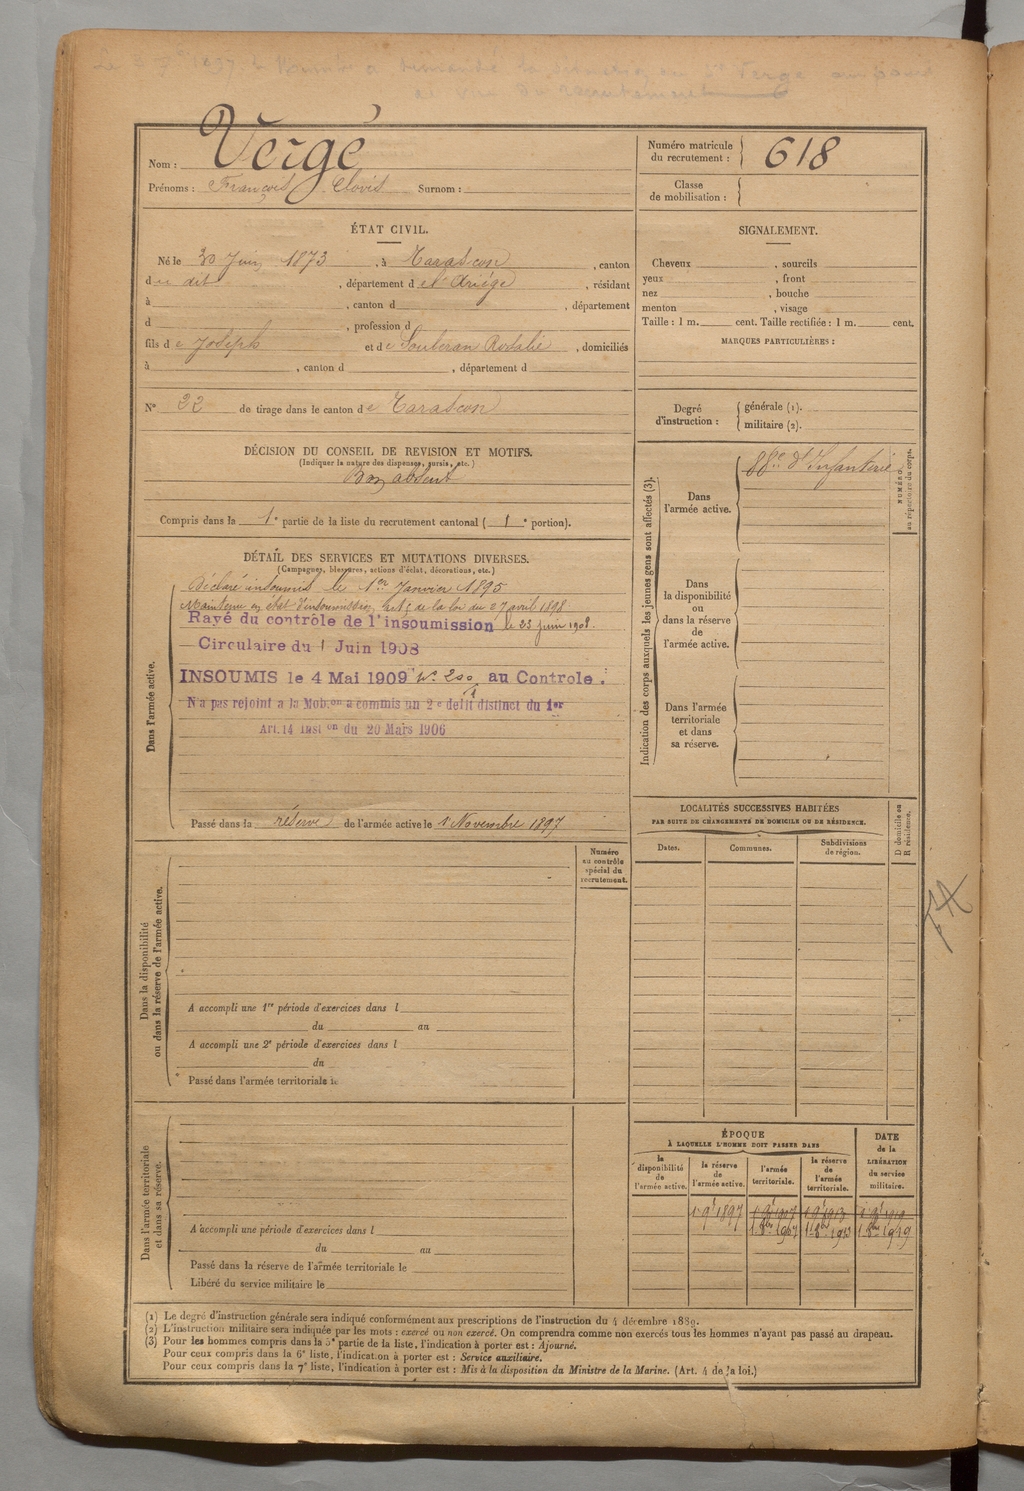 Vergé
Nom :
Prénoms : François Clovis Surnom :
Numéro matricule
du recrutement : 618
Classe
de mobilisation :
ÉTAT CIVIL.
Né le 30 Juin 1873, à Tarascon, canton
du dit, département de l'Ariège, résidant
à , canton d , département
d , profession d
fils de Joseph et de Souleran Rosalie, domiciliés
à , canton d , département d
N° 22 de tirage dans le canton de Tarascon
SIGNALEMENT.
Cheveux , sourcils
yeux , front
nez , bouche
menton , visage
Taille : 1 m. cent. Taille rectifiée : 1 m. cent.
MARQUES PARTICULIÈRES :
Degré
d'instruction :
générale (1).
militaire (2).
DÉCISION DU CONSEIL DE REVISION ET MOTIFS.
(Indiquer la nature des dispenses, sursis, etc.)
Bon absent
Compris dans la 1e partie de la liste du recrutement cantonal ( 1e portion).
Indication des corps auxquels les jeunes gens sont affectés (3).
Dans
l'armée active.
88e d'Infanterie
NUMÉRO
au répertoire du corps.
Dans
la disponibilité
ou
dans la réserve
de
l'armée active.
Dans l'armée
territoriale
et dans
sa réserve.
DÉTAIL DES SERVICES ET MUTATIONS DIVERSES.
(Campagnes, blessures, actions d'éclat, décorations, etc.)
Dans l'armée active.
Déclaré insoumis le 1er Janvier 1895
Maintenu en état d'insoumission, art 5 de la loi du 27 avril 1898
Rayé du contrôle de l'insoumission le 23 juin 1908.
Circulaire du 1 Juin 1908
INSOUMIS le 4 Mai 1909 N° 200 au Controle.
N'a pas rejoint a la Mob.on a commis un 2e delit distinct du 1er
Art. 14 Inston du 20 Mars 1906
Passé dans la réserve de l'armée active le 1 Novembre 1897
LOCALITÉS SUCCESSIVES HABITÉES
PAR SUITE DE CHANGEMENTS DE DOMICILE OU DE RÉSIDENCE.
Dates.
Communes.
Subdivisions
de région.
D domicile ou
R résidence.
Dans la disponibilité
ou dans la réserve de l'armée active.
Numéro
au contrôle
spécial du
recrutement.
A accompli une 1re période d'exercices dans l
du au
A accompli une 2e période d'exercices dans l
du
Passé dans l'armée territoriale le
Dans l'armée territoriale
et dans sa réserve.
A accompli une période d'exercices dans l
du au
Passé dans la réserve de l'armée territoriale le
Libéré du service militaire le
ÉPOQUE
À LAQUELLE L'HOMME DOIT PASSER DANS
la
disponibilité
de
l'armée active.
la réserve
de
l'armée active.
l'armée
territoriale.
la réserve
de
l'armée
territoriale.
DATE
de la
LIBÉRATION
du service
militaire.
1 9b 1897 1 9b 1907 1 9b 1913 1 9b 1919
1 8bre 1907 1 8bre 1913 1 8bre 1919
(1) Le degré d'instruction générale sera indiqué conformément aux prescriptions de l'instruction du 4 décembre 1889.
(2) L'instruction militaire sera indiquée par les mots : exercé ou non exercé. On comprendra comme non exercés tous les hommes n'ayant pas passé au drapeau.
(3) Pour les hommes compris dans la 5e partie de la liste, l'indication à porter est : Ajourné.
Pour ceux compris dans la 6e liste, l'indication à porter est : Service auxiliaire.
Pour ceux compris dans la 7e liste, l'indication à porter est : Mis à la disposition du Ministre de la Marine. (Art. 4 de la loi.)